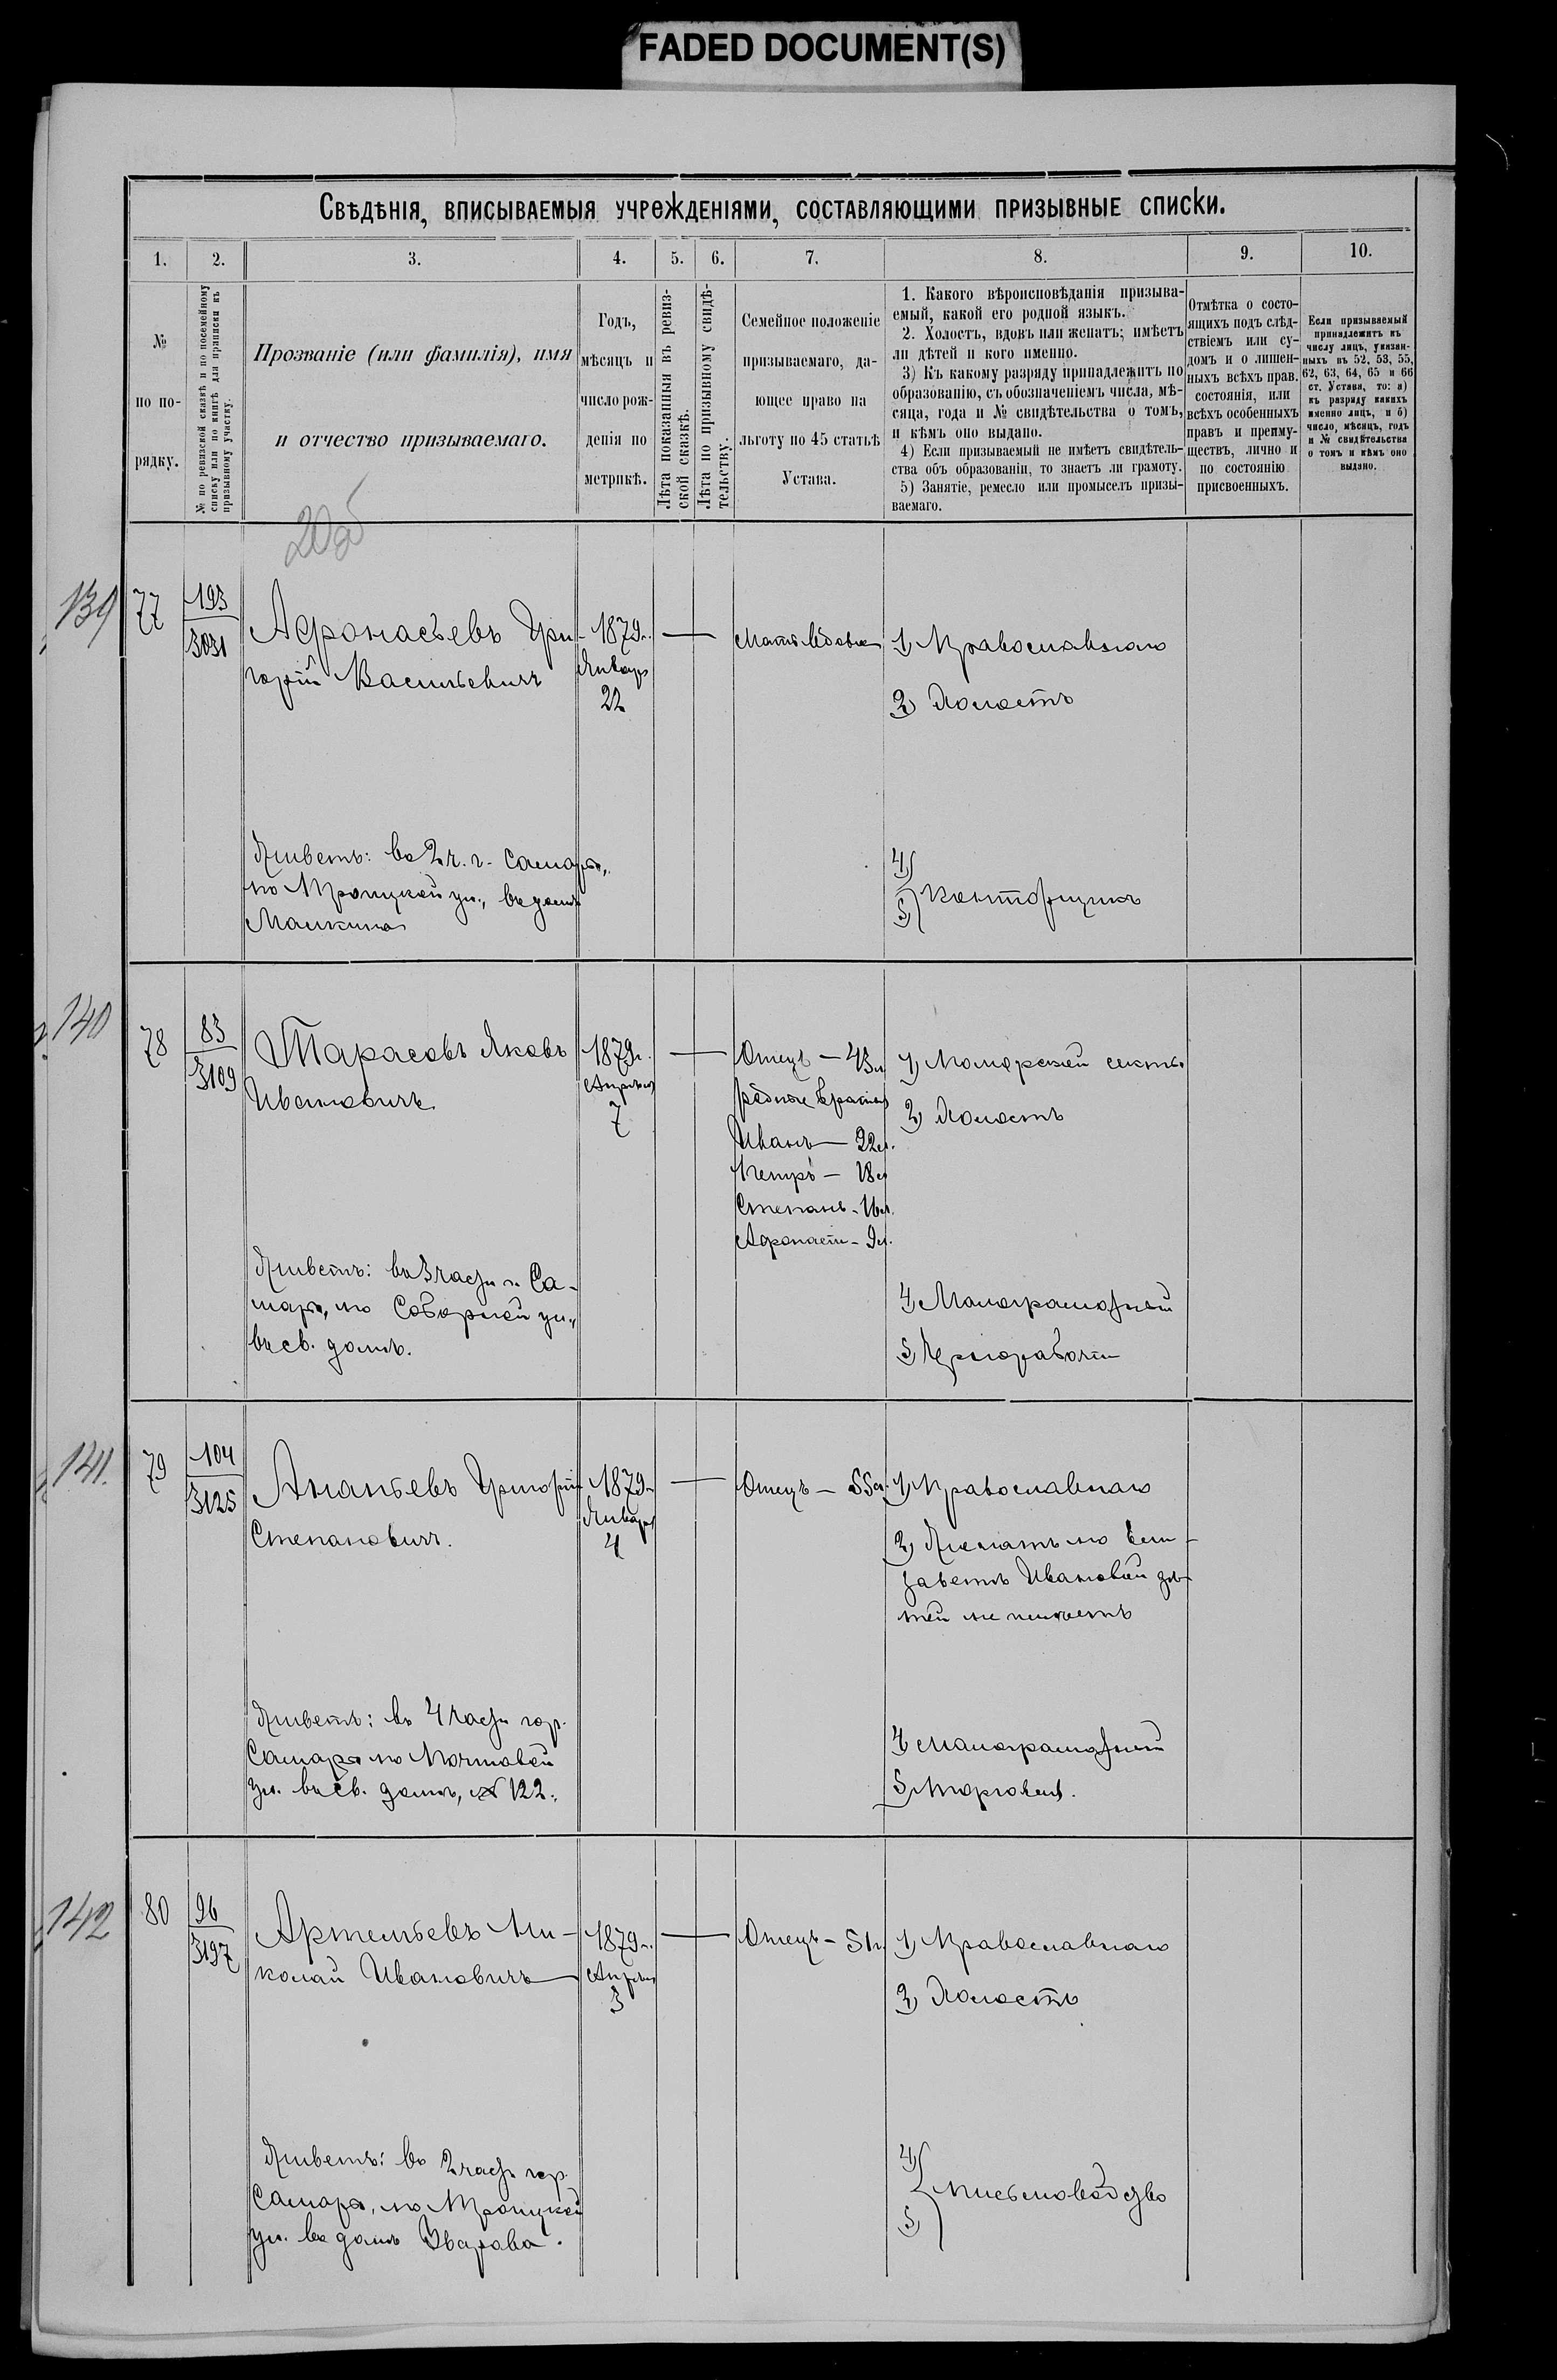 FADED DOCUMENT(S)
Свѣдѣнія, вписываемыя учрежденіями, составляющими призывные списки.
1. 2. 3. 4. 5. 6. 7. 8. 9. 10.
№
по по-
рядку.
№ по ревизской сказкѣ и по посемейному
списку или по книгѣ для приписки къ
призывному участку.
Прозваніе (или фамилія), имя
и отчество призываемаго.
Годъ,
мѣсяцъ и
число рож-
денія по
метрикѣ.
Лѣта показанныя въ ревиз-
ской сказкѣ.
Лѣта по призывному свидѣ-
тельству.
Семейное положеніе
призываемаго, да-
ющее право на
льготу по 45 статьѣ
Устава.
1. Какого вѣроисповѣданія призыва-
емый, какой его родной языкъ.
2. Холостъ, вдовъ или женатъ; имѣетъ
ли дѣтей и кого именно.
3) Къ какому разряду принадлежитъ по
образованію, съ обозначеніемъ числа, мѣ-
сяца, года и № свидѣтельства о томъ,
и кѣмъ оно выдано.
4) Если призываемый не имѣетъ свидѣтель-
ства объ образованіи, то знаетъ ли грамоту.
5) Занятіе, ремесло или промыселъ призы-
ваемаго.
Отмѣтка о состо-
ящихъ подъ слѣд-
ствіемъ или су-
домъ и о лишен-
ныхъ всѣхъ прав.
состоянія, или
всѣхъ особенныхъ
правъ и преиму-
ществъ, лично и
по состоянію
присвоенныхъ.
Если призываемый
принадлежитъ къ
числу лицъ, указан-
ныхъ въ 52, 53, 55,
62, 63, 64, 65 и 66
ст. Устава, то: а)
къ разряду какихъ
именно лицъ, и б)
число, мѣсяцъ, годъ
и № свидѣтельства
о томъ и кѣмъ оно
выдано.
139
77
193
3031
Афонасьевъ Гри-
горій Васильевичъ
1879г.
Января
22
Мать вдова
1) Православнаго
2) Холостъ
Живетъ: въ 2 ч. г. Самары,
по Троицкой ул., въ домѣ
Маслкина
4)
5) Конторщикъ
140
78
83
3109
Тарасовъ Яковъ
Ивановичъ
1879г.
Апрѣля
7
Отецъ — 43 л
родные братья
Иванъ — 22 л.
Петръ — 18 л
Степанъ - 16 л.
Афонасій - 9 л.
1) Поморской секты
2) Холостъ
Живетъ: въ 3 части г. Са-
мары, по Соборной ул.,
въ св. домѣ.
4) Малограмотный
5) Чернорабочій
141.
79
104
3125
Ананьевъ Григорій
Степановичъ.
1879г.
Января
4
Отецъ — 55 л.
1) Православнаго
2) Женатъ на Ели-
заветѣ Ивановой дѣ-
тей не имѣетъ
Живетъ: въ 4 части гор.
Самары по Почтовой
ул. въ св. домѣ, № 122.
4) малограмотный
5) Торговецъ.
142
80
96
3197
Артемьевъ Ни-
колай Ивановичъ
1879г.
Апрѣля
3
Отецъ — 51 г.
1) Православнаго
2) Холостъ
Живетъ: въ 2 части гор.
Самары, по Троицкой
ул. въ домѣ Уварова.
4)
5) письмоводство